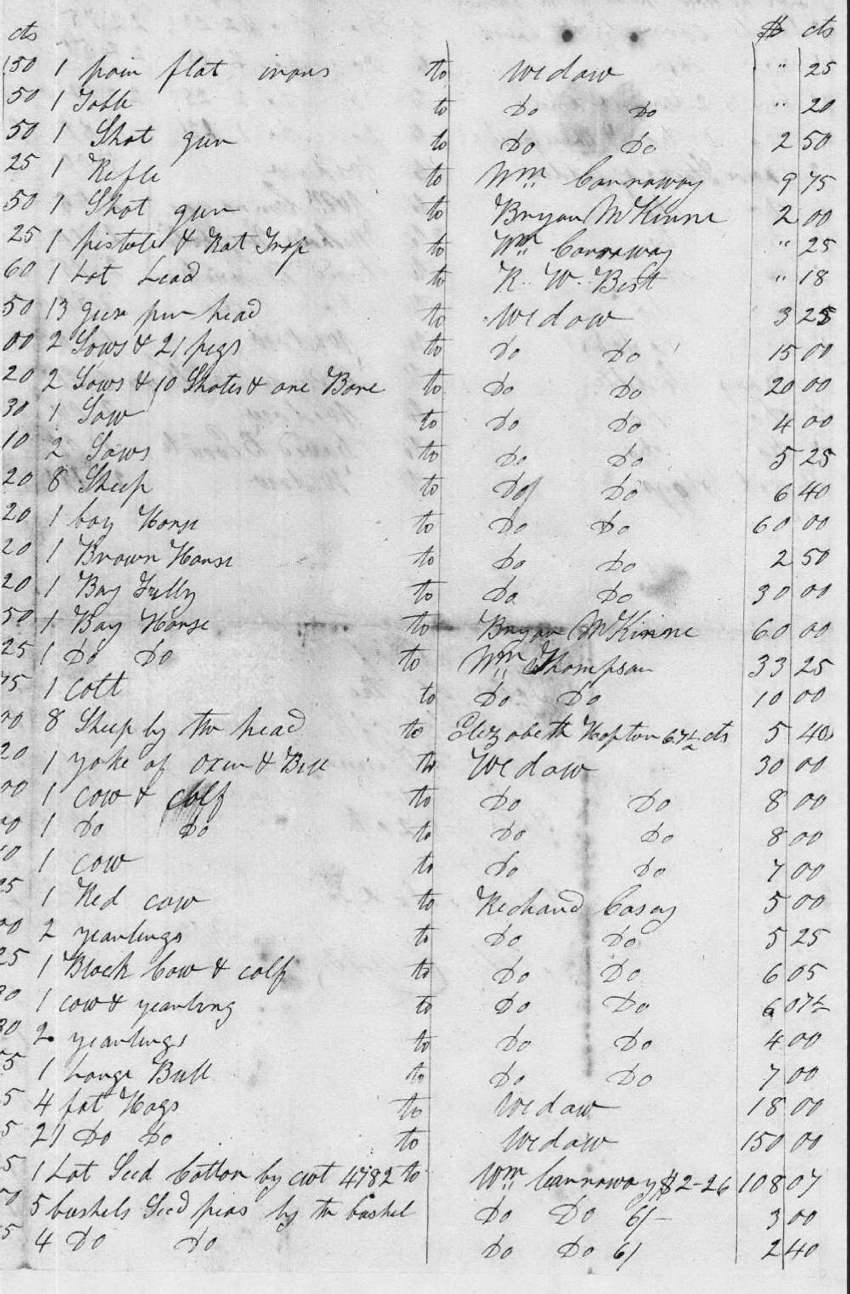 cts $ cts
50 1 pair flat irons to Widow " 25
50 1 Table to Do Do " 20
50 1 Shot gun to Do Do 2 50
25 1 Rifle to Wm Carraway 9 75
50 1 Shot gun to Bryan McKinne 2 00
25 1 pistole & Rat Trap to Wm Carraway " 25
60 1 Lot Lead to R. W. Best " 18
50 13 geese per head to Widow 3 25
00 2 Sows & 21 pigs to Do Do 15 00
20 2 Sows & 10 Shotes & one Bore to Do Do 20 00
30 1 Sow to Do Do 4 00
10 2 Sows to Do Do 5 25
20 8 Sheep to Do Do 6 40
20 1 bay Horse to Do Do 60 00
20 1 Brown Horse to Do Do 2 50
20 1 Bay Filly to Do Do 30 00
50 1 Bay Horse to Bryan McKinne 60 00
25 1 Do Do to Wm Thompson 33 25
75 1 Colt to Do Do 10 00
00 8 Sheep by the head to Elizabeth Hopton 67½ cts 5 40
20 1 yoke of oxen & Bell to Widow 30 00
00 1 cow & calf to Do Do 8 00
1 Do Do to Do Do 8 00
1 cow to Do Do 7 00
25 1 Red cow to Richard Casey 5 00
00 2 yearlings to Do Do 5 25
25 1 Black Cow & calf to Do Do 6 05
1 cow & yearling to Do Do 6 07½
2 yearlings to Do Do 4 00
5 1 Large Bull to Do Do 7 00
5 4 fat Hogs to Widow 18 00
5 21 Do Do to Widow 150 00
5 1 Lot Seed Cotton by cwt 4782 to Wm Carraway $2-26 108 07
5 bushels Seed peas by the bushel Do Do 6/- 3 00
5 4 Do Do Do Do 6/ 2 40